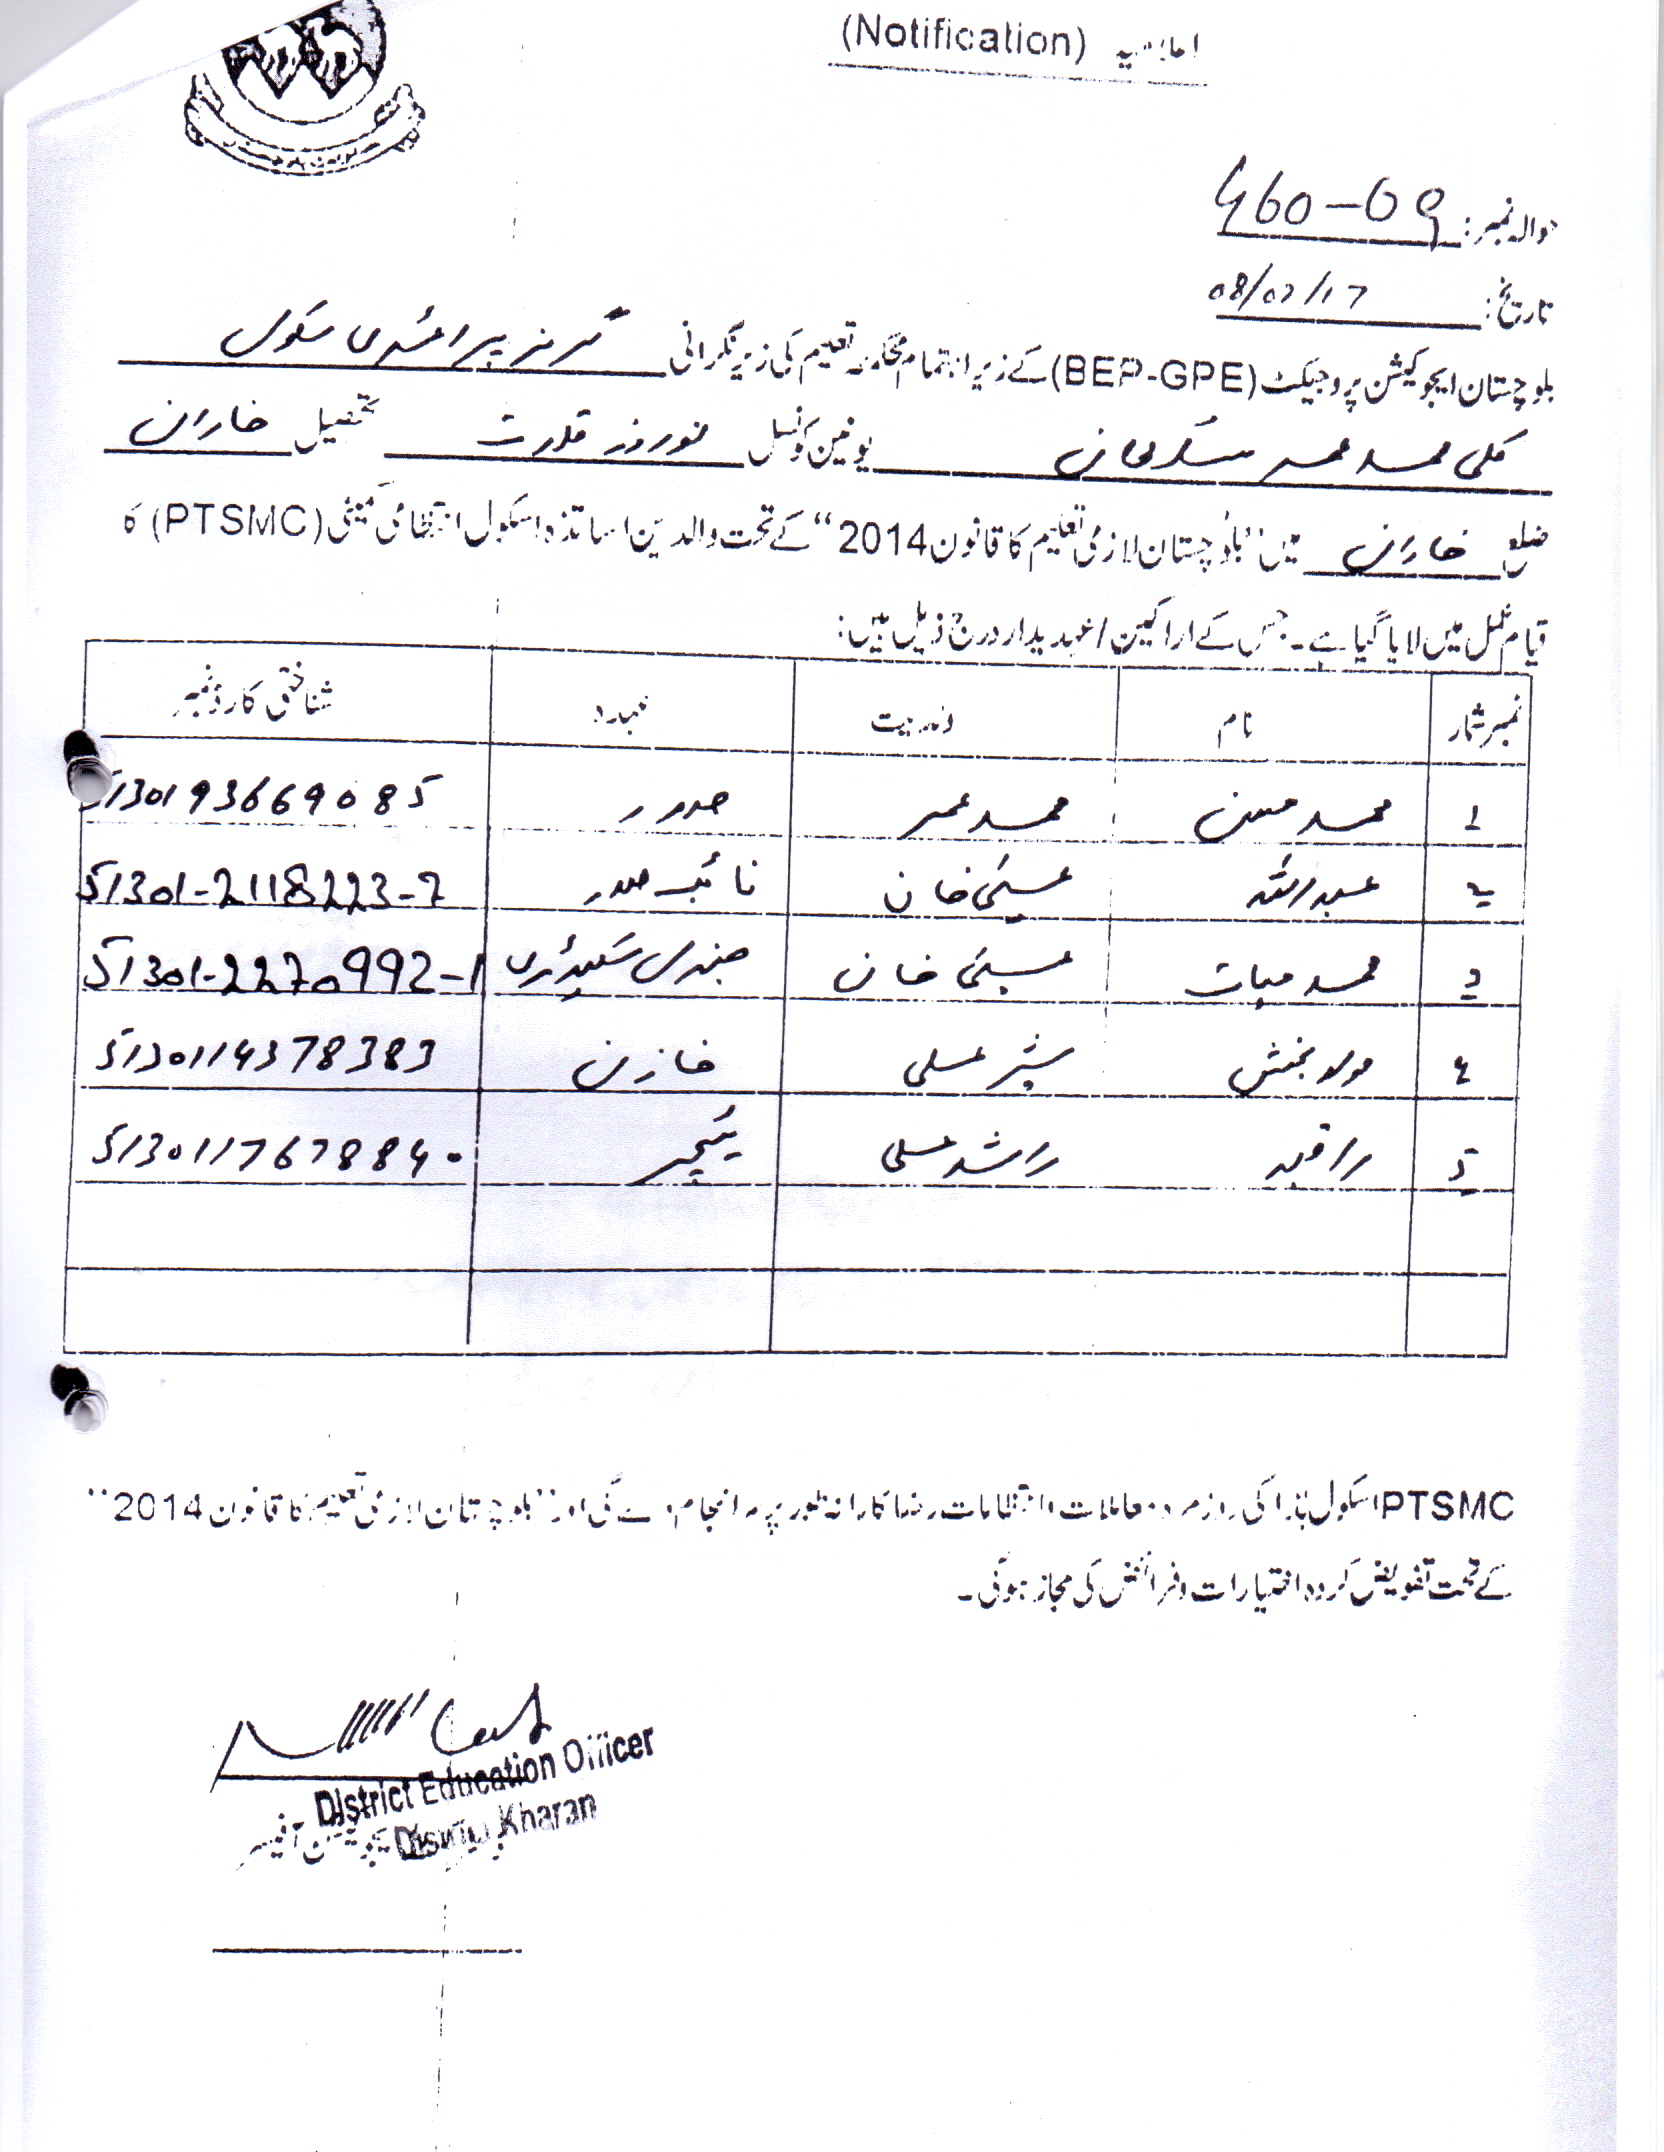 اعلامیہ (Notification)
حوالہ نمبر: 460-69
تاریخ: 08/02/17
بلوچستان ایجوکیشن پروجیکٹ (BEP-GPE) کے زیر اہتمام محکمہ تعلیم کی زیر نگرانی گرلز پرائمری سکول
کلی محمد عمر یونین کونسل نوروز قلات تحصیل خاران
ضلع خاران میں "بلوچستان لازمی تعلیم کا قانون 2014" کے تحت والدین اساتذہ اسکول انتظامی کمیٹی (PTSMC) کا
قیام عمل میں لایا گیا ہے۔ جس کے اراکین / عہدیدار درج ذیل ہیں:
نمبر شمار نام ولدیت عہدہ شناختی کارڈ نمبر
۱ محمد حسن محمد عمر صدر 5130193669085
۲ عبداللہ عیسیٰ خان نائب صدر 51301-2118223-7
۳ محمد حیات عیسیٰ خان جنرل سیکیٹری 51301-2270992-1
۴ مولا بخش شیر علی خازن 5130114378383
۵ راشد علی ٹیچر 5130117678840
PTSMC اسکول ہذا کی روزمرہ معاملات و انتظامات رضا کارانہ طور پر سر انجام دے گی اور "بلوچستان لازمی تعلیم کا قانون 2014"
کے تحت تفویض کردہ اختیارات و فرائض کی مجاز ہوگی۔
District Education Officer
District Kharan
ایجوکیشن آفیسر